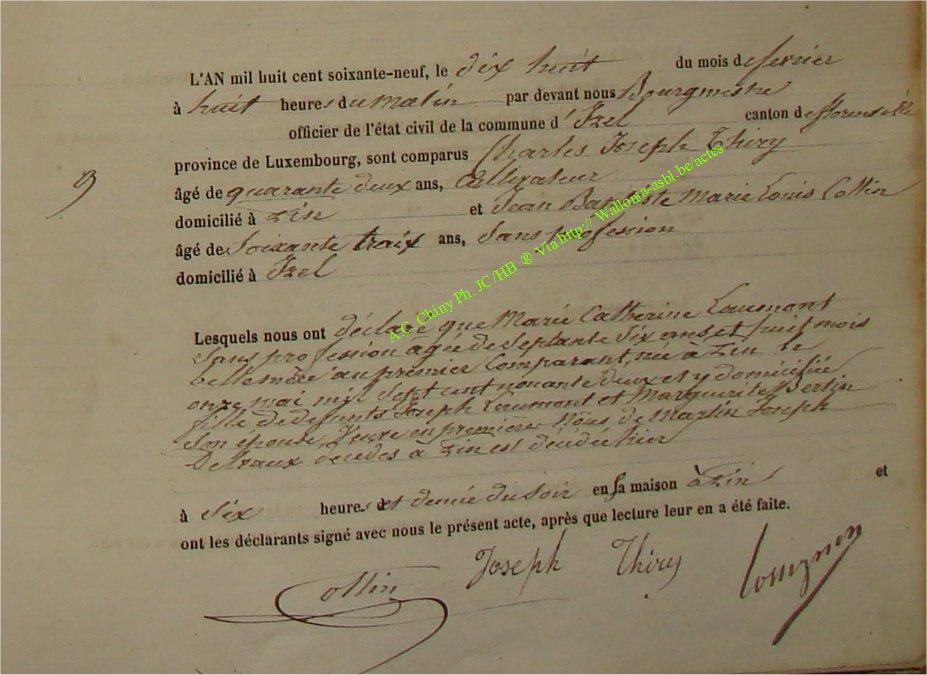 L'AN mil huit cent soixante-neuf, le dix huit du mois de fevrier
à huit heures du matin par devant nous Bourgmestre
officier de l'état civil de la commune d'Izel canton de florenville
province de Luxembourg, sont comparus Charles Joseph Thiry
9
âgé de quarante deux ans, Cultivateur
domicilié à Zin et Jean Baptiste Marie Louis Collin
âgé de Soixante traix ans, Sans profession
domicilié à Izel
A.C. Chiny Ph. JC/HB ® Via http:// Wallonia-asbl.be/actes
Lesquels nous ont déclaré que Marie Catherine Laumont
Sans profession agée de Septante Six ans et huit mois
belle mère au premier Comparant, née à Zin le
onze mai mil Sept cent nonante deux et y domiciliée
fille de defunts Joseph Laumont et Marguerite Bertin
Son epouse, Veuve en premiere Nous de Martin Joseph
décédés à Zin est décédée hier
à Six heures et demie du Soir en sa maison à Zin et
ont les déclarants signé avec nous le présent acte, après que lecture leur en a été faite.
Collin Joseph Thiry